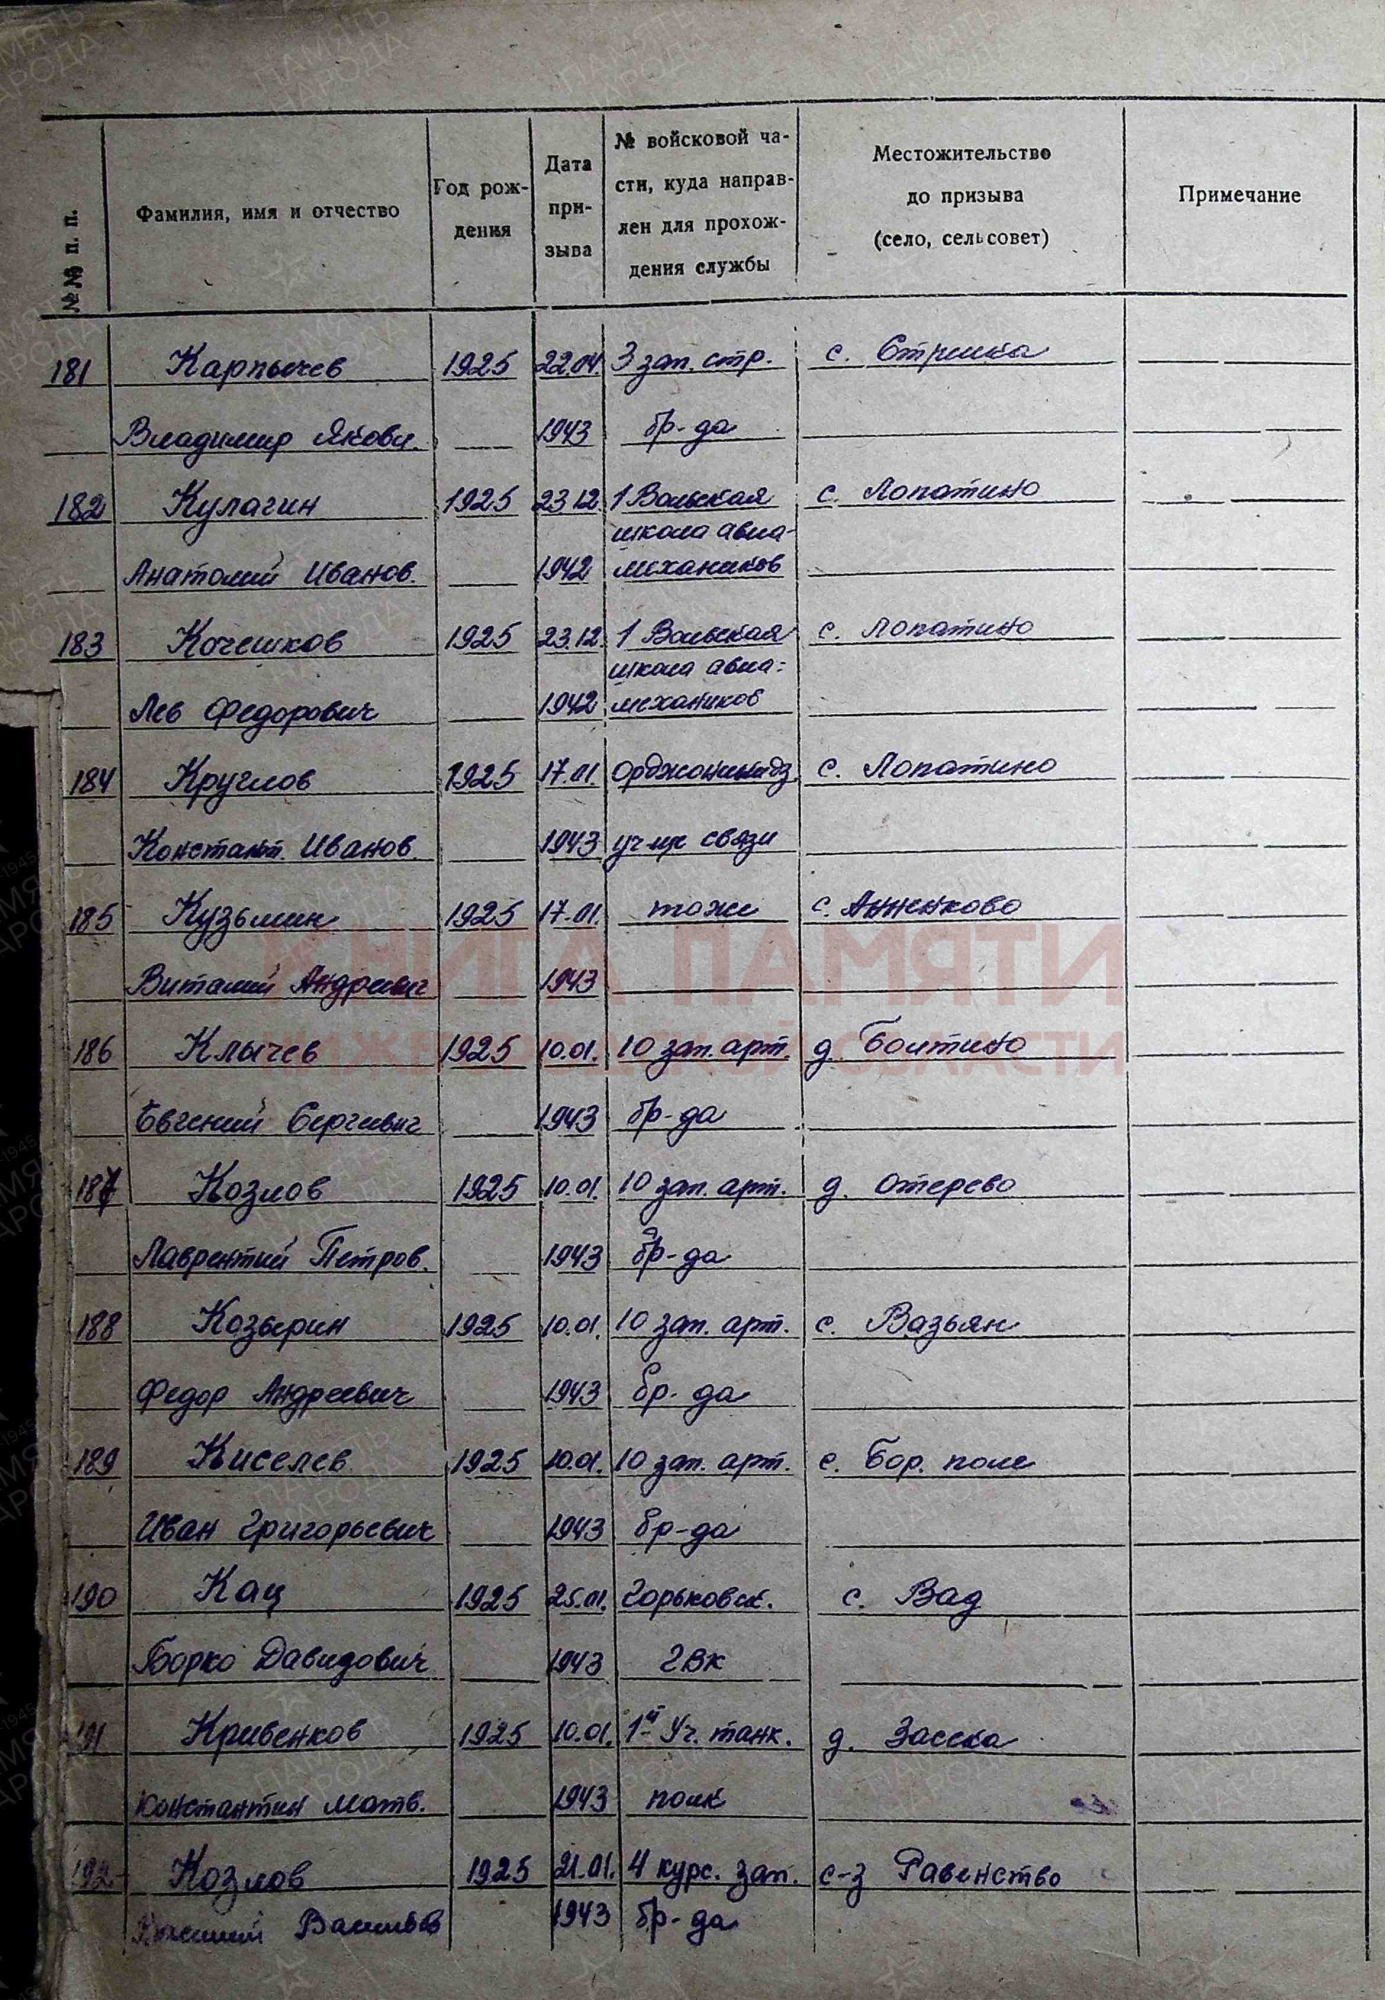 №№ п. п.
Фамилия, имя и отчество
Год рож-
дения
Дата
при-
зыва
№ войсковой ча-
сти, куда направ-
лен для прохож-
дения службы
Местожительство
до призыва
(село, сельсовет)
Примечание
181 Карпычев 1925 22.04. 3 зап. стр. с. Стрелка
Владимир Яковл. 1943 бр-да
182 Кулагин 1925 23.12. 1 Вольская с. Лопатино
школа авиа-
Анатолий Иванов. 1942 механиков
183 Кочешков 1925 23.12. 1 Вольская с. Лопатино
школа авиа-
Лев Федорович 1942 механиков
184 Круглов 1925 17.01. Орджоникидз. с. Лопатино
Констант. Иванов. 1943 уч-ще связи
185 Кузьмин 1925 17.01. тоже с. Анненково
Виталий Андреевич 1943
186 Клычев 1925 10.01. 10 зап. арт. д. Болтино
Евгений Сергеевич 1943 бр-да
187 Козлов 1925 10.01. 10 зап. арт. д. Отерево
Лаврентий Петров. 1943 бр-да
188 Козырин 1925 10.01. 10 зап. арт. с. Вазьян
Федор Андреевич 1943 бр-да
189 Киселев 1925 10.01. 10 зап. арт. с. Бор. поле
Иван Григорьевич 1943 бр-да
190 Кац 1925 25.01. Горьковск. с. Вад
Борко Давидович 1943 ГВК
191 Кривенков 1925 10.01. 1й Уч. танк. д. Засека
Константин Матв. 1943 полк
192 Козлов 1925 21.01. 4 курс. зап. с-з Равенство
Василий Васильев 1943 бр-да
КНИГА ПАМЯТИ
НИЖЕГОРОДСКОЙ ОБЛАСТИ
ПАМЯТЬ
НАРОДА